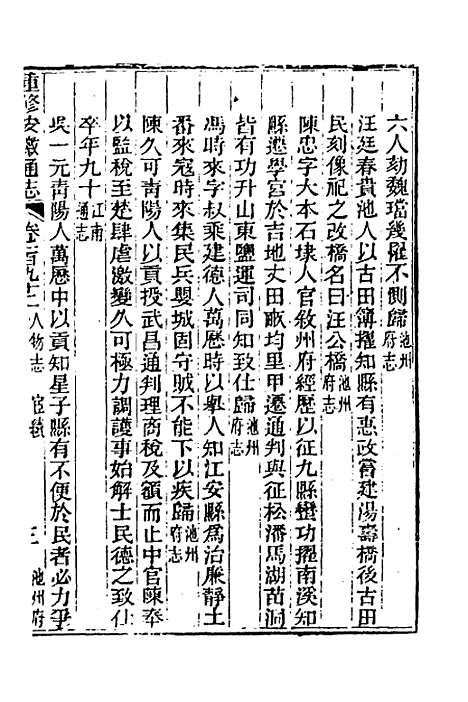 六人劾魏璫幾罹不測歸池州府志
汪廷春貴池人以古田簿擢知縣有惠政嘗建湯壽橋後古田
民刻像祀之改橋名曰汪公橋池州府志
陳忠字大本石埭人官敘州府經歷以征九縣蠻功擢南溪知
縣遷學宮於吉地丈田畝均里甲遷通判與征松潘馬湖苗洞
皆有功升山東鹽運司同知致仕歸池州府志
馮時來字叔乘建德人萬歷時以舉人知江安縣爲治廉靜土
番來寇時來集民兵嬰城固守賊不能下以疾歸池州府志
陳久可靑陽人以貢授武昌通判理商稅及額而止中官陳奉
以監稅至楚肆虐激變久可極力調護事始解士民德之致仕
卒年九十江南通志
吳一元靑陽人萬歷中以貢知星子縣有不便於民者必力爭
重修安徽通志 卷一百九十二 人物志 宦績 三 池州府